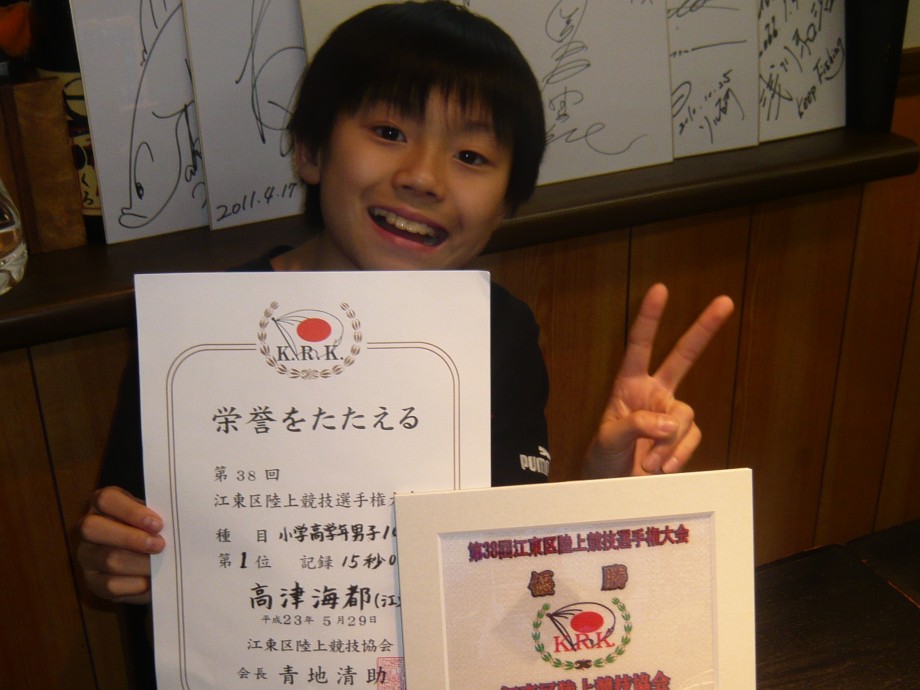 2011.4.17
2010.10.25
Keep Fishing
K.R.K.
栄誉をたたえる
第38回
江東区陸上競技選手権大
種 目 小学高学年男子10
第1位 記録 15秒0
高津海都(江
平成23年5月29日
江東区陸上競技協会
会長 青地清助
PUMA
第38回江東区陸上競技選手権大会
優 勝
K.R.K.
江東区陸上競技協会